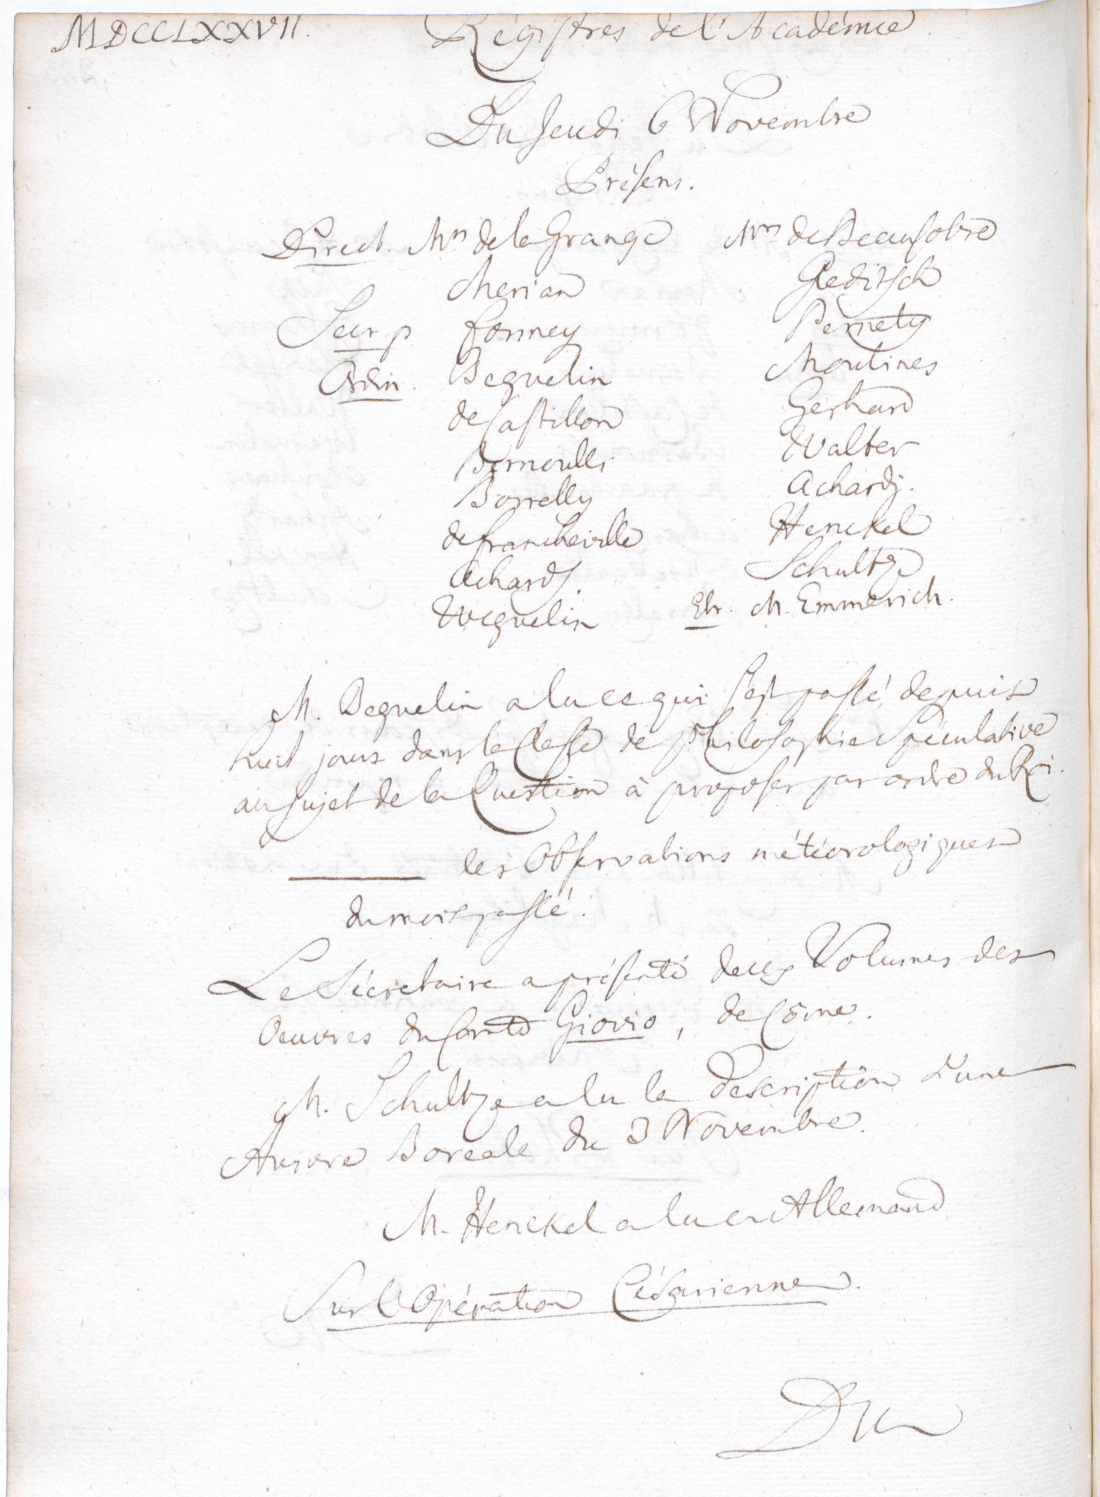 MDCCLXXVII. Régistres de l'Académie.
Du Jeudi 6 Novembre
Présens.
Direct. Mrs de la Grange Mrs de Beausobre
Merian Gleditsch
Secr. p. Formey Pernety
Ordin. Beguelin Moulines
de Castillon Gerhard
Bernoulli Walter
Borrelly Achard j.
de Francheville Henckel
Achard f. Schultze
Weguelin Etr. M. Emmerich.
M. Beguelin a lu ce qui s'est passé, depuis
huit jours dans la Classe de Philosophie Spéculative
au sujet de la Question à proposer par ordre du Roi.
les Observations météorologiques
du mois passé.
Le Sécretaire a présenté deux Volumes des
Oeuvres du Comte Giovio, de Côme.
M. Schultze a lu la Description d'une
Aurore Boreale du 3 Novembre.
M. Henckel a lu en Allemand
Sur l'Opération Césarienne.
Du